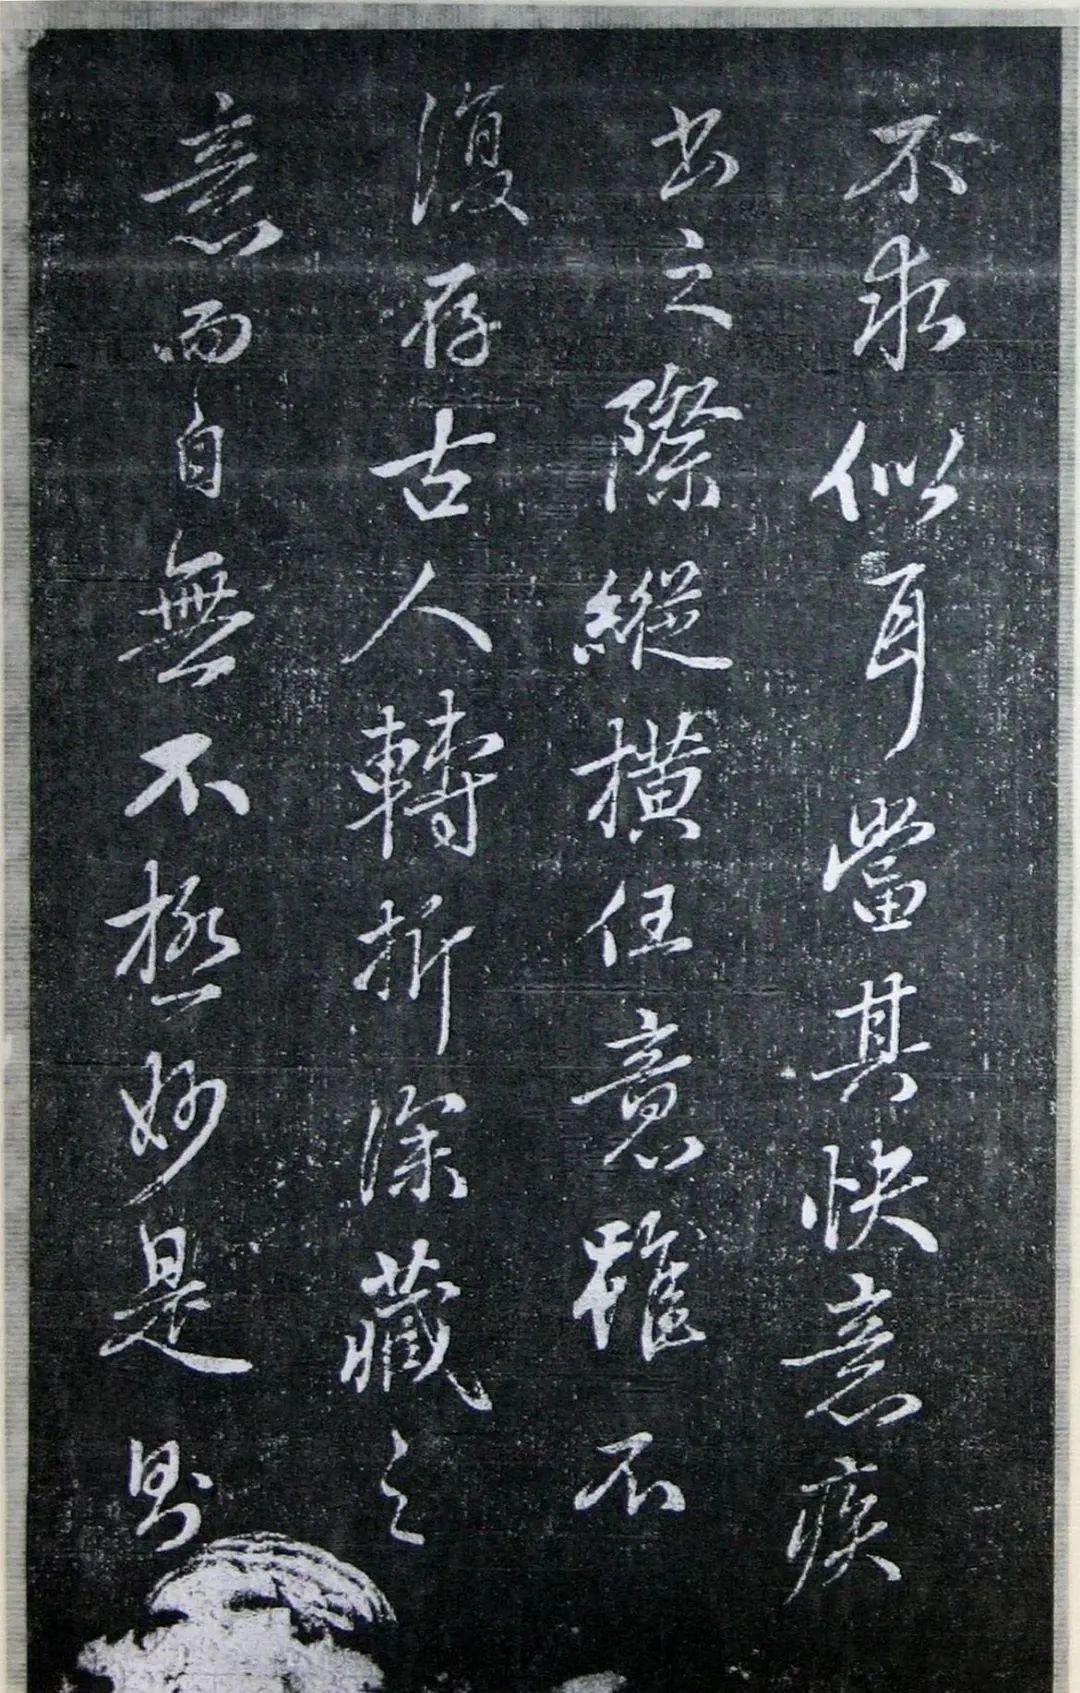 不求似耳當其快意疾
書之際縱横任意雖不
復存古人轉折深藏之
意而自無不極妙是則